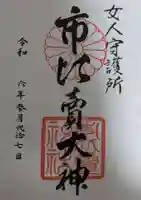 女人守護所
市比賣大神
令和
六年参月弐拾七日